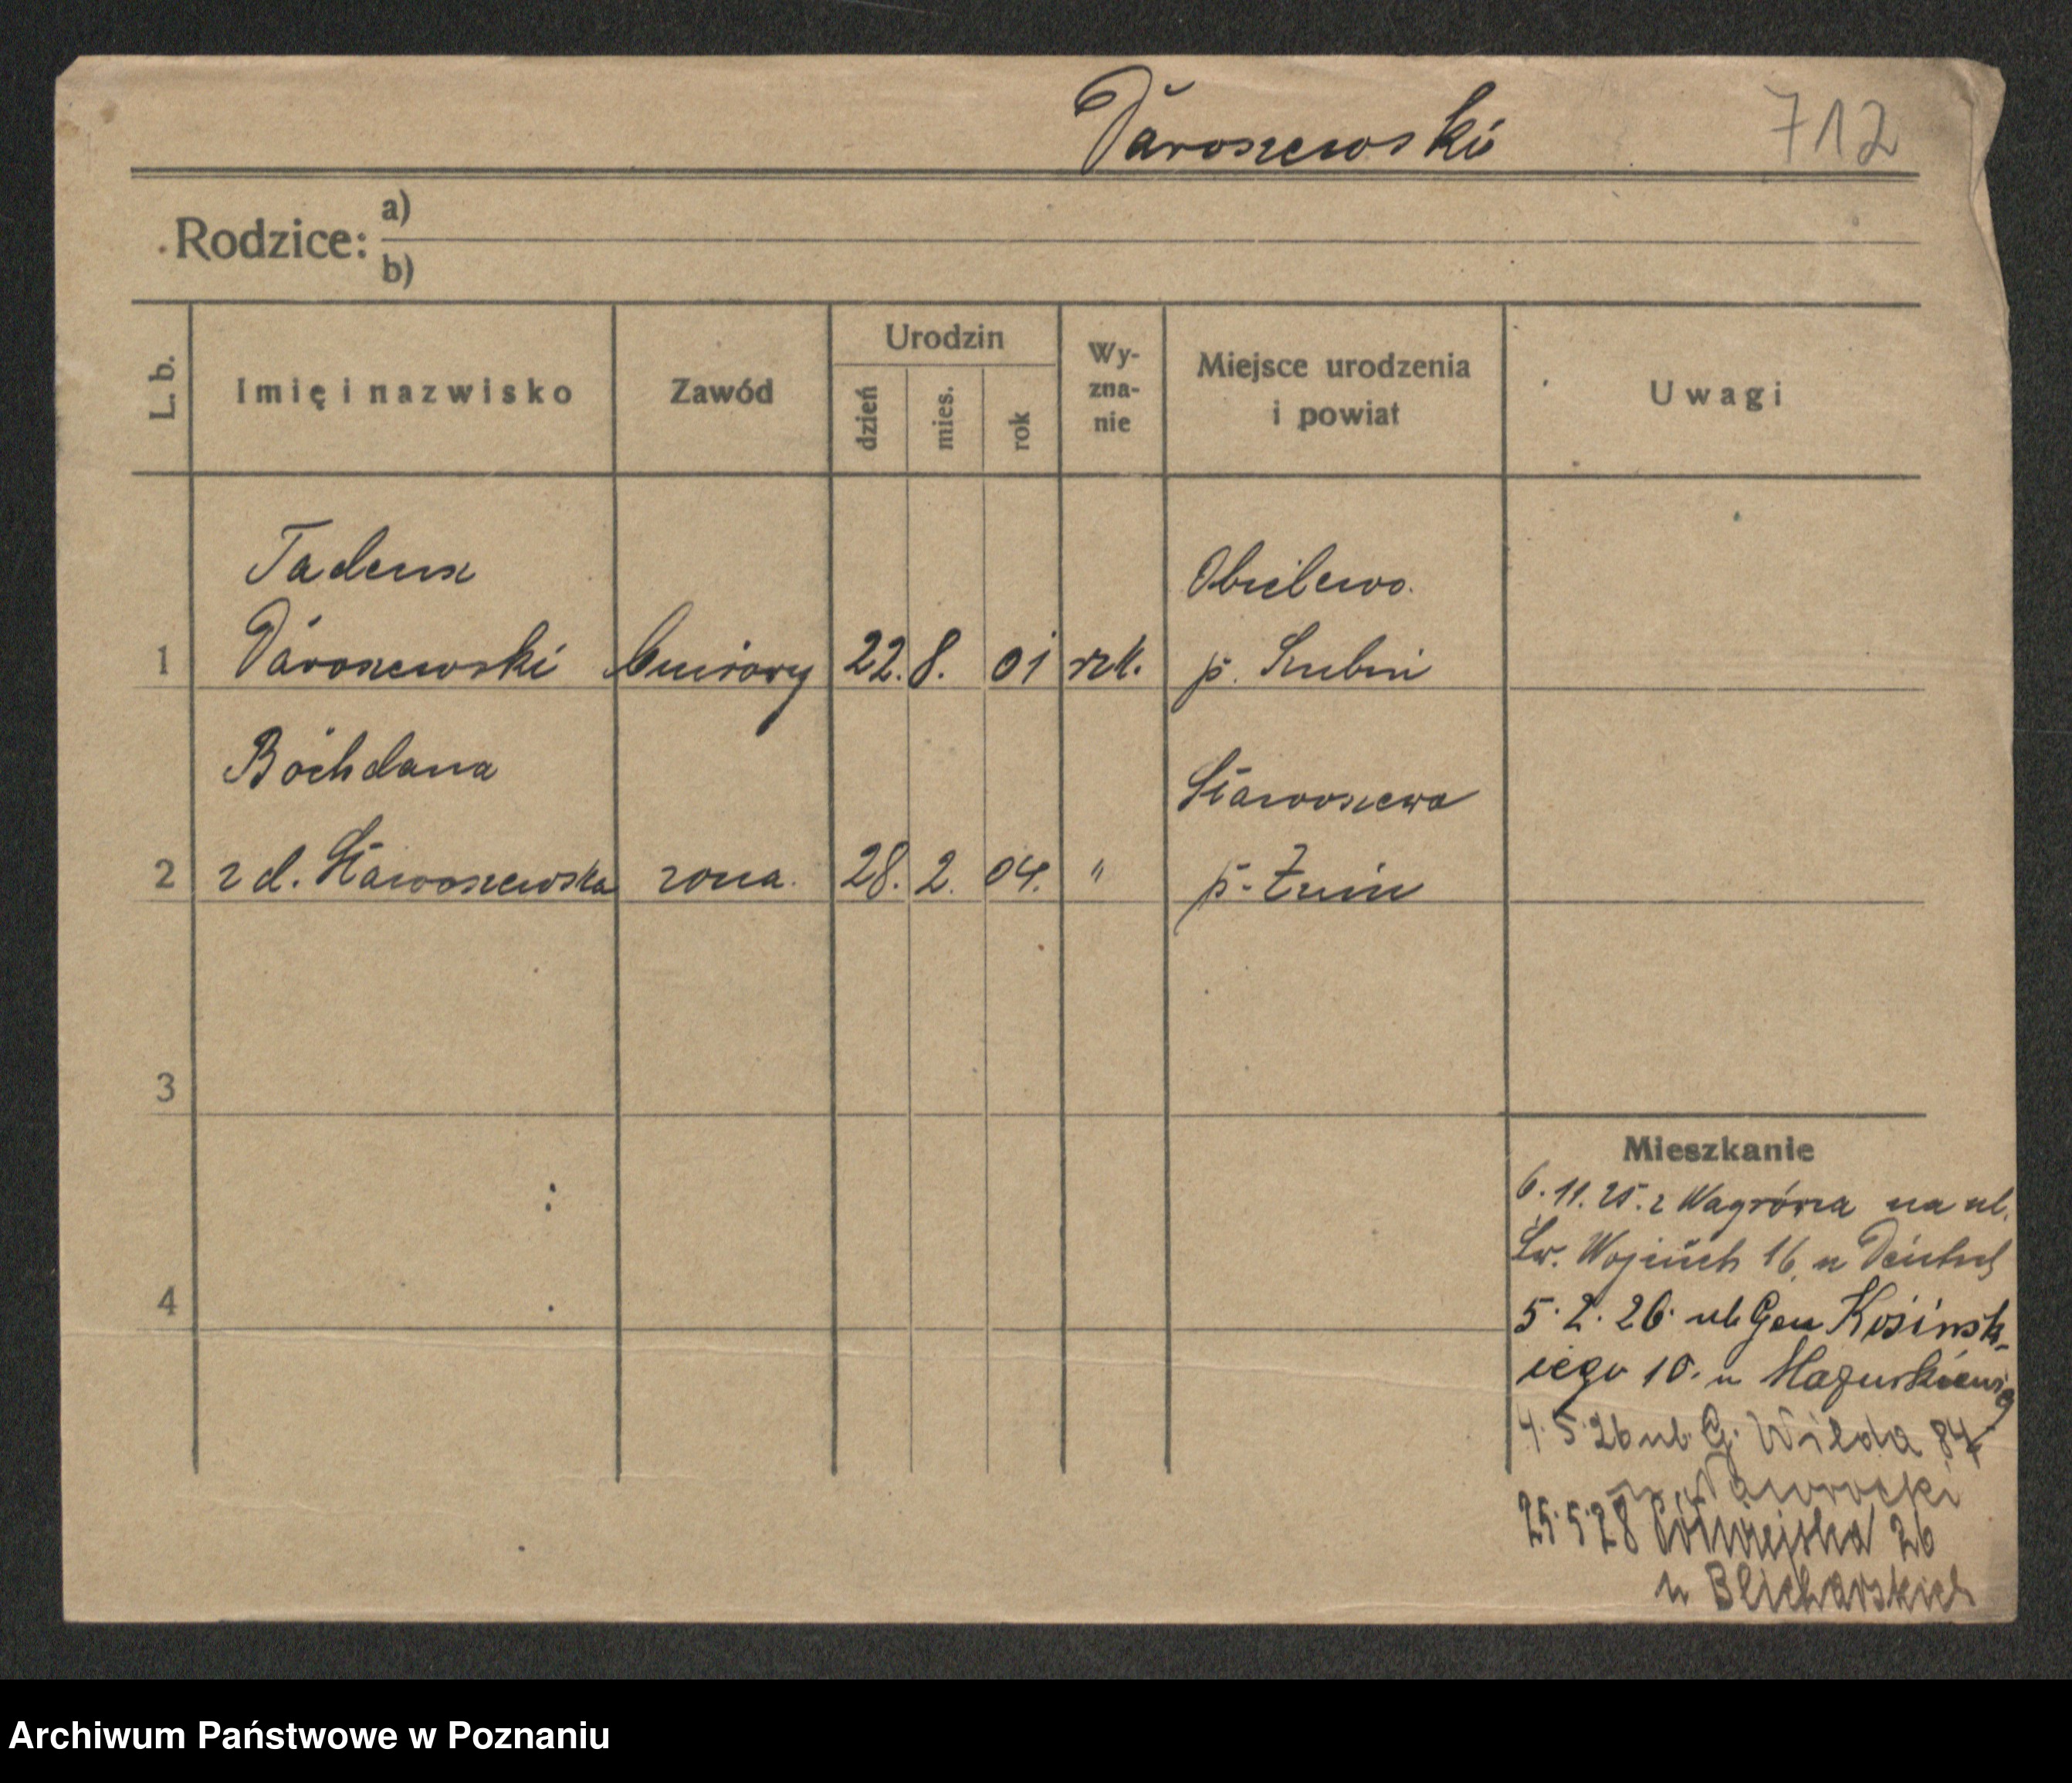 Jaroszewski 712
Rodzice: a)
b)
L. b.
Imię i nazwisko
Zawód
Urodzin
dzień
mies.
rok
Wy-
zna-
nie
Miejsce urodzenia
i powiat
Uwagi
Tadeusz Obielewo.
1 Jaroszewski biurowy 22. 8. 01 rzk. p. Szubin
Bohdana Staroszewa
2 z d. żona. 28. 2. 04. " p. Żnin
3
4
Mieszkanie
6. 11. 25. z Wągrówca na ul.
Św. Wojciech 16 u
5. 2. 26. ul. Gen Kosińsk-
iego 10. u Mazurkiewicz
4. 5. 26 ul. G. Wilda 84
u Nawrocki
25.5.28 Półwiejska 26
u Blicharskich
Archiwum Państwowe w Poznaniu